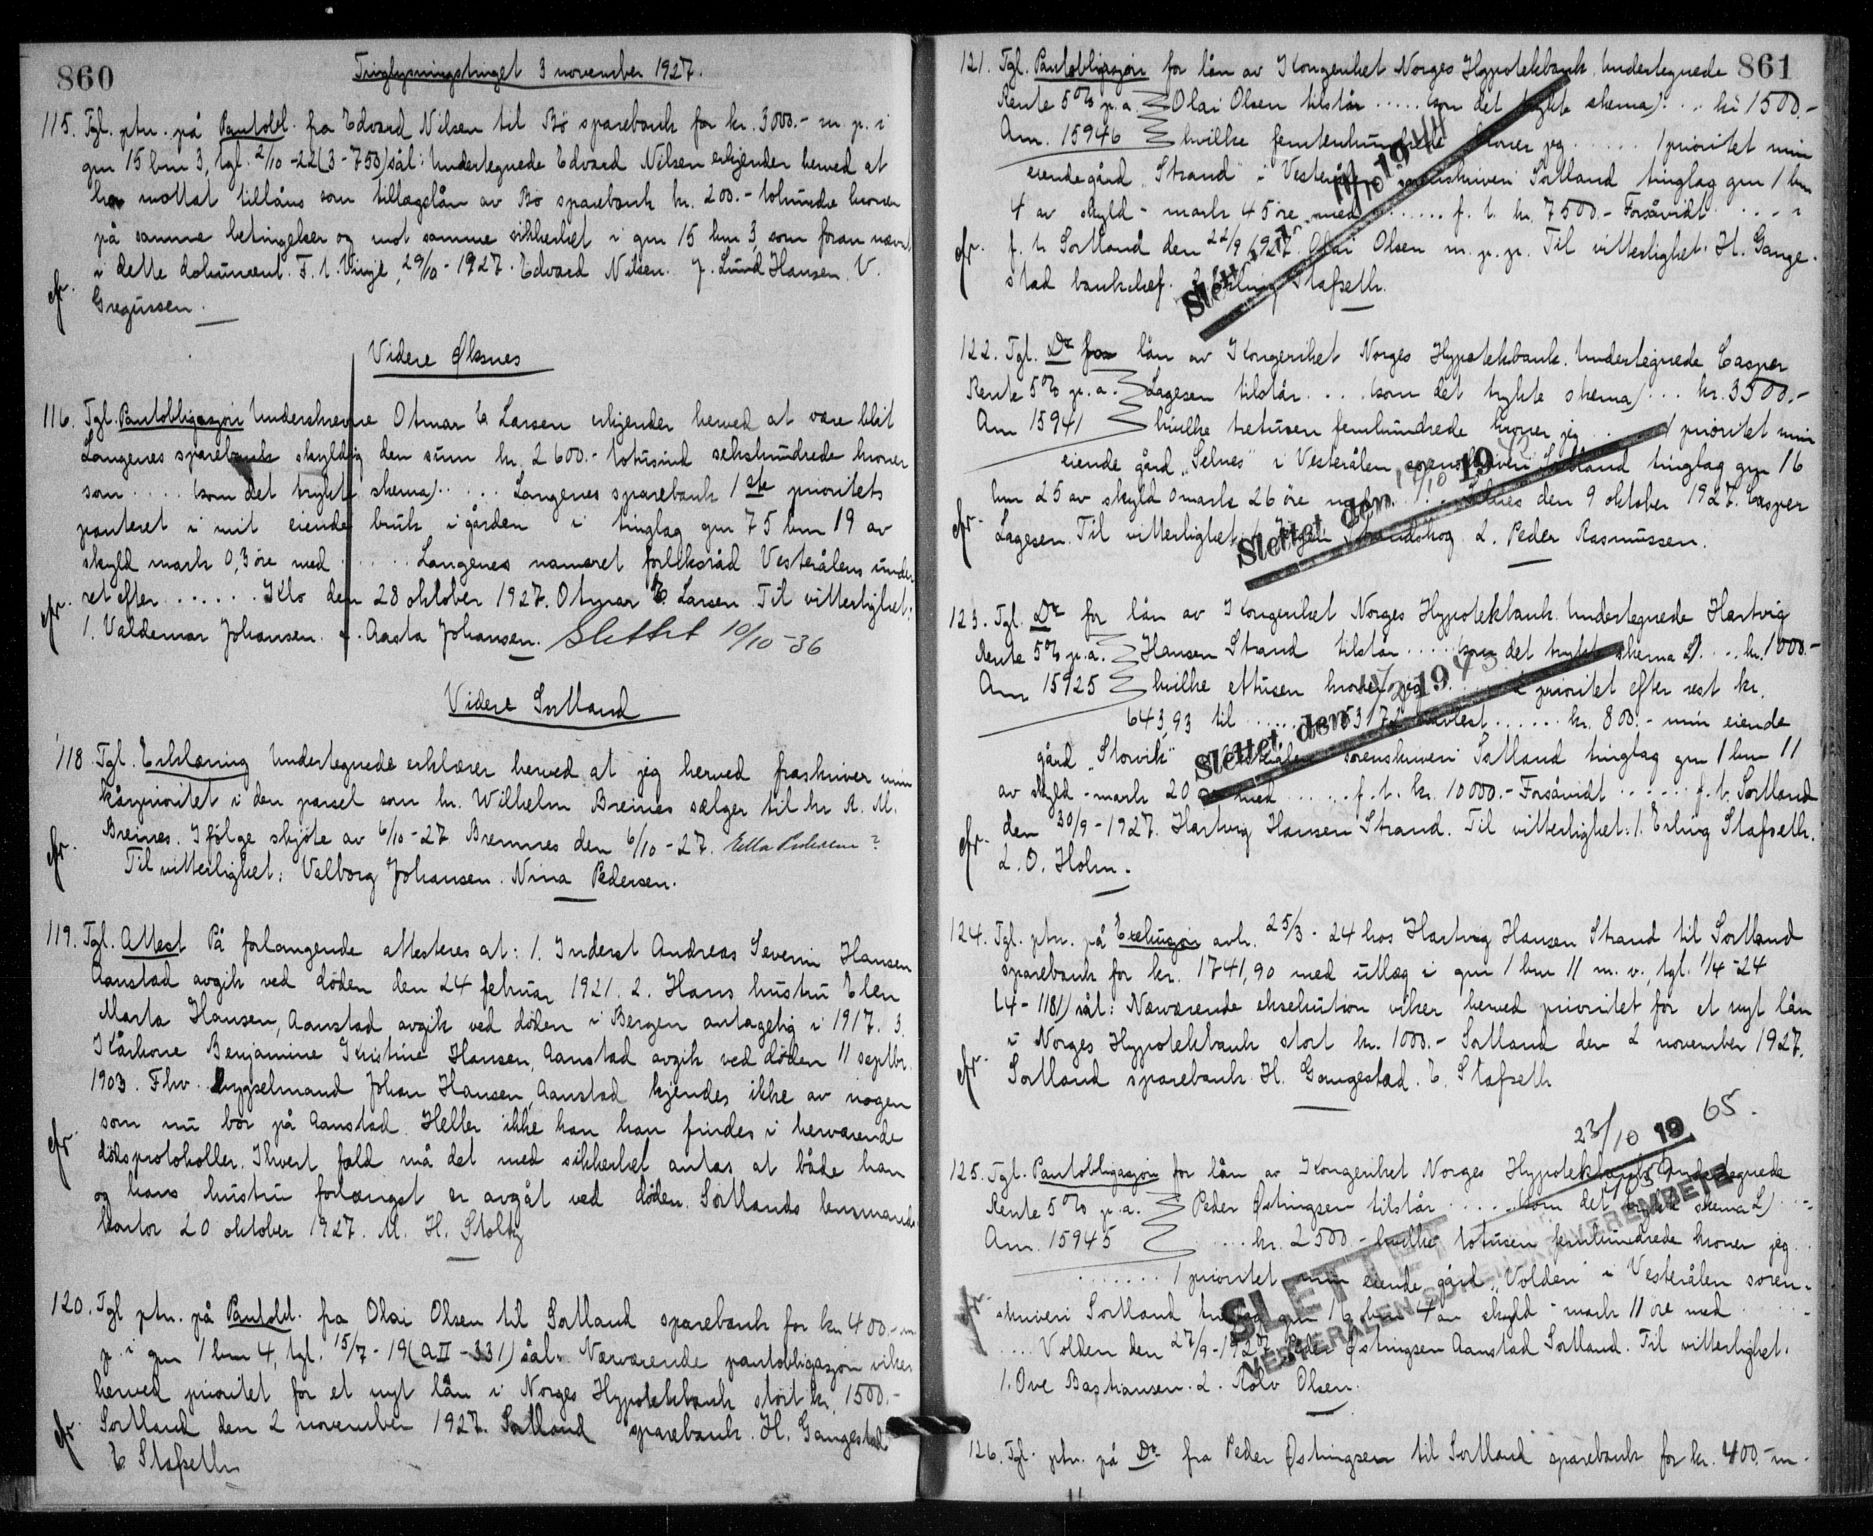 860
Tinglysningstinget 3 november 1927.
115. Tgl. ptn. på Pantobl. fra Edvard Nilsen til Bø sparebank for kr. 3000.- m. p. i
gnr 15 bnr 3, tgl. 2/10-22 (3-750) sål: Undertegnede Edvard Nilsen erkjender herved at
ha mottat tillåns som tillægslån av Bø sparebank kr. 200.- tohundre kroner
på samme betingelser og mot samme sikkerhet i gnr 15 bnr 3, som foran nævnt
i dette dokument. F. t. Vinje, 29/10-1927. Edvard Nilsen. J. Lund Hansen. V.
Gregussen.
Videre Øksnes
116. Tgl. Pantobligasjon Underskrevne Otmar E Larsen erkjender herved at være blit
Langenes sparebank skyldig den sum kr. 2600.- totusind sekshundrede kroner
som .... (som det trykte skema) .... Langenes sparebank 1ste prioritets
panteret i mit eiende bruk i gården i tinglag gnr 75 bnr 19 av
skyld mark 0,3 øre med ...... Langenes namsret forliksråd Vesterålens under
ret efter ...... Klo den 28 oktober 1927. Otmar E. Larsen. Til vitterlighet:
1. Valdemar Johansen. 2. Aasta Johansen. Slettet 10/10-36
Videre Sortland
118 Tgl. Erklæring Undertegnede erklærer herved at jeg herved fraskriver min
kårprioritet i den parsel som hr. Wilhelm Breines sælger til hr A. M.
Breines. Ifølge skjøte av 6/10-27 Bremnes den 6/10-27. Ella Pedersen?
Til vitterlighet: Valborg Johansen. Nina Pedersen.
119. Tgl. Attest På forlangende attesteres at: 1. Inderst Andreas Severin Hansen
Aanstad avgik ved døden den 24 februar 1921. 2. Hans hustru Elen
Marta Hansen, Aanstad avgik ved døden i Bergen antagelig i 1917. 3.
Kårkone Benjamine Kristine Hansen, Aanstad avgik ved døden 11 septbr.
1903. Fhv. bygselmand Johan Hansen, Aanstad kjendes ikke av nogen
som nu bor på Aanstad. Heller ikke kan han findes i herværende
dødsprotokoller. I hvert fald må det med sikkerhet antas at både han
og hans hustru forlængst er avgåt ved døden. Sortlands lensmands
kontor 20 oktober 1927. M. H. Stoltz
120. Tgl ptn. på Pantobl. fra Olai Olsen til Sortland sparebank for kr. 400.- m
p. i gnr 1 bnr 4, tgl. 15/7-19 (AII-331) sål: Nærværende pantobligasjon viker
herved prioritet for et nyt lån i Norges Hypotekbank stort kr. 1500.-
Sortland den 2 november 1927. Sortland sparebank. H. Gangestad
E Stafseth
861
121. Tgl. Pantobligasjon for lån av Kongeriket Norges Hypotekbank. Undertegnede
Rente 5% p. a. Olai Olsen tilstår ..... (som det trykte skema) ... kr 1500.-
Am. 15946 hvilke femtenhundrede kroner jeg ..... 1 prioritet min
eiende gård "Strand" i Vesterålen sorenskriveri Sortland tinglag gnr 1 bnr
4 av skyld - mark 45 øre med ...... f. t. kr. 7500.- Forsåvidt .....
f. t. Sortland den 22/9 1927. Olai Olsen m. p. p. Til vitterlighet: H. Gange-
stad banksjef. 2. Erling Stafseth.
122. Tgl. Do for lån av Kongeriket Norges Hypotekbank. Undertegnede Casper
Rente 5% p. a. Lagesen tilstår .... (som det trykte skema) ... kr. 3500.-
Am 15941 hvilke tretusen femhundrede kroner jeg ..... 1 prioritet min
eiende gård "Selnes" i Vesterålen sorenskriveri Sortland tinglag gnr 16
bnr 25 av skyld 0 mark 26 øre med ..... Selnes den 9 oktober 1927. Casper
Lagesen. Til vitterlighet: 2. Peder Rasmussen.
Slettet den 19
123. Tgl. Do for lån av Kongeriket Norges Hypotekbank. Undertegnede Hartvig
Rente 5% p. a. Hansen Strand tilstår ..... (som det trykte skema 2) ... kr. 1000.-
Am 15925 hvilke ettusen kroner jeg ..... 2 prioritet efter rest kr.
643,93 til ...... kr. 800.- min eiende
gård "Storvik" Vesterålen sorenskriveri Sortland tinglag gnr 1 bnr 11
av skyld - mark 20 øre med ...... f. t. kr. 10000.- Forsåvidt ...... f. t. Sortland
den 30/9-1927. Hartvig Hansen Strand. Til vitterlighet: 1. Erling Stafseth.
2. O. Holm.
Slettet den 19
124. Tgl. ptn. på Exekusjon avh. 25/3-24 hos Hartvig Hansen Strand til Sortland
sparebank for kr. 1741,90 med utlæg i gnr 1 bnr 11 m. v., tgl. 1/4-24
(4-1181) sål: Nærværende eksekution viker herved prioritet for et nyt lån
i Norges Hypotekbank stort kr. 1000.- Sortland den 2 november 1927.
Sortland sparebank. H. Gangestad. E. Stafseth
23/10 19 65.
125. Tgl. Pantobligasjon for lån av Kongeriket Norges Hypotekbank. Undertegnede
Rente 5% p. a. Peder Østingsen tilstår ...... (som det trykte skema 2) ...
Am. 15945 .... kr. 2500.- hvilke totusen femhundrede kroner jeg ..
...... 1 prioritet min eiende gård "Volden" i Vesterålen soren-
skriveri Sortland tinglag gnr 16 bnr 4 av skyld - mark 11 øre med
.... Volden den 27/9-1927. Peder Østingsen Aanstad Sortland. Til vitterlighet.
1. Ove Bastiansen. 2. Rolv Olsen.
SLETTET
VESTERÅLEN SORENSKRIVEREMBETE
126. Tgl. ptn. på Do fra Peder Østingsen til Sortland sparebank for kr. 400.- m.